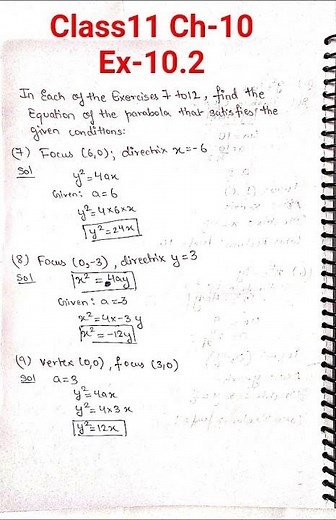 Class11 Ch-10
Ex-10.2
In Each of the Exercises 7 to 12, find the
Equation of the parabola that satisfies the
given conditions:
(7) Focus (6,0); directrix x=-6
Sol
y²=4ax
Given: a=6
y²=4×6×x
y²=24x
(8) Focus (0,-3), directrix y=3
Sol
x²=4ay
Given: a=-3
x²=4×-3 y
x²=-12y
(9) Vertex (0,0), focus (3,0)
Sol
a=3
y²=4ax
y²=4×3x
y²=12x